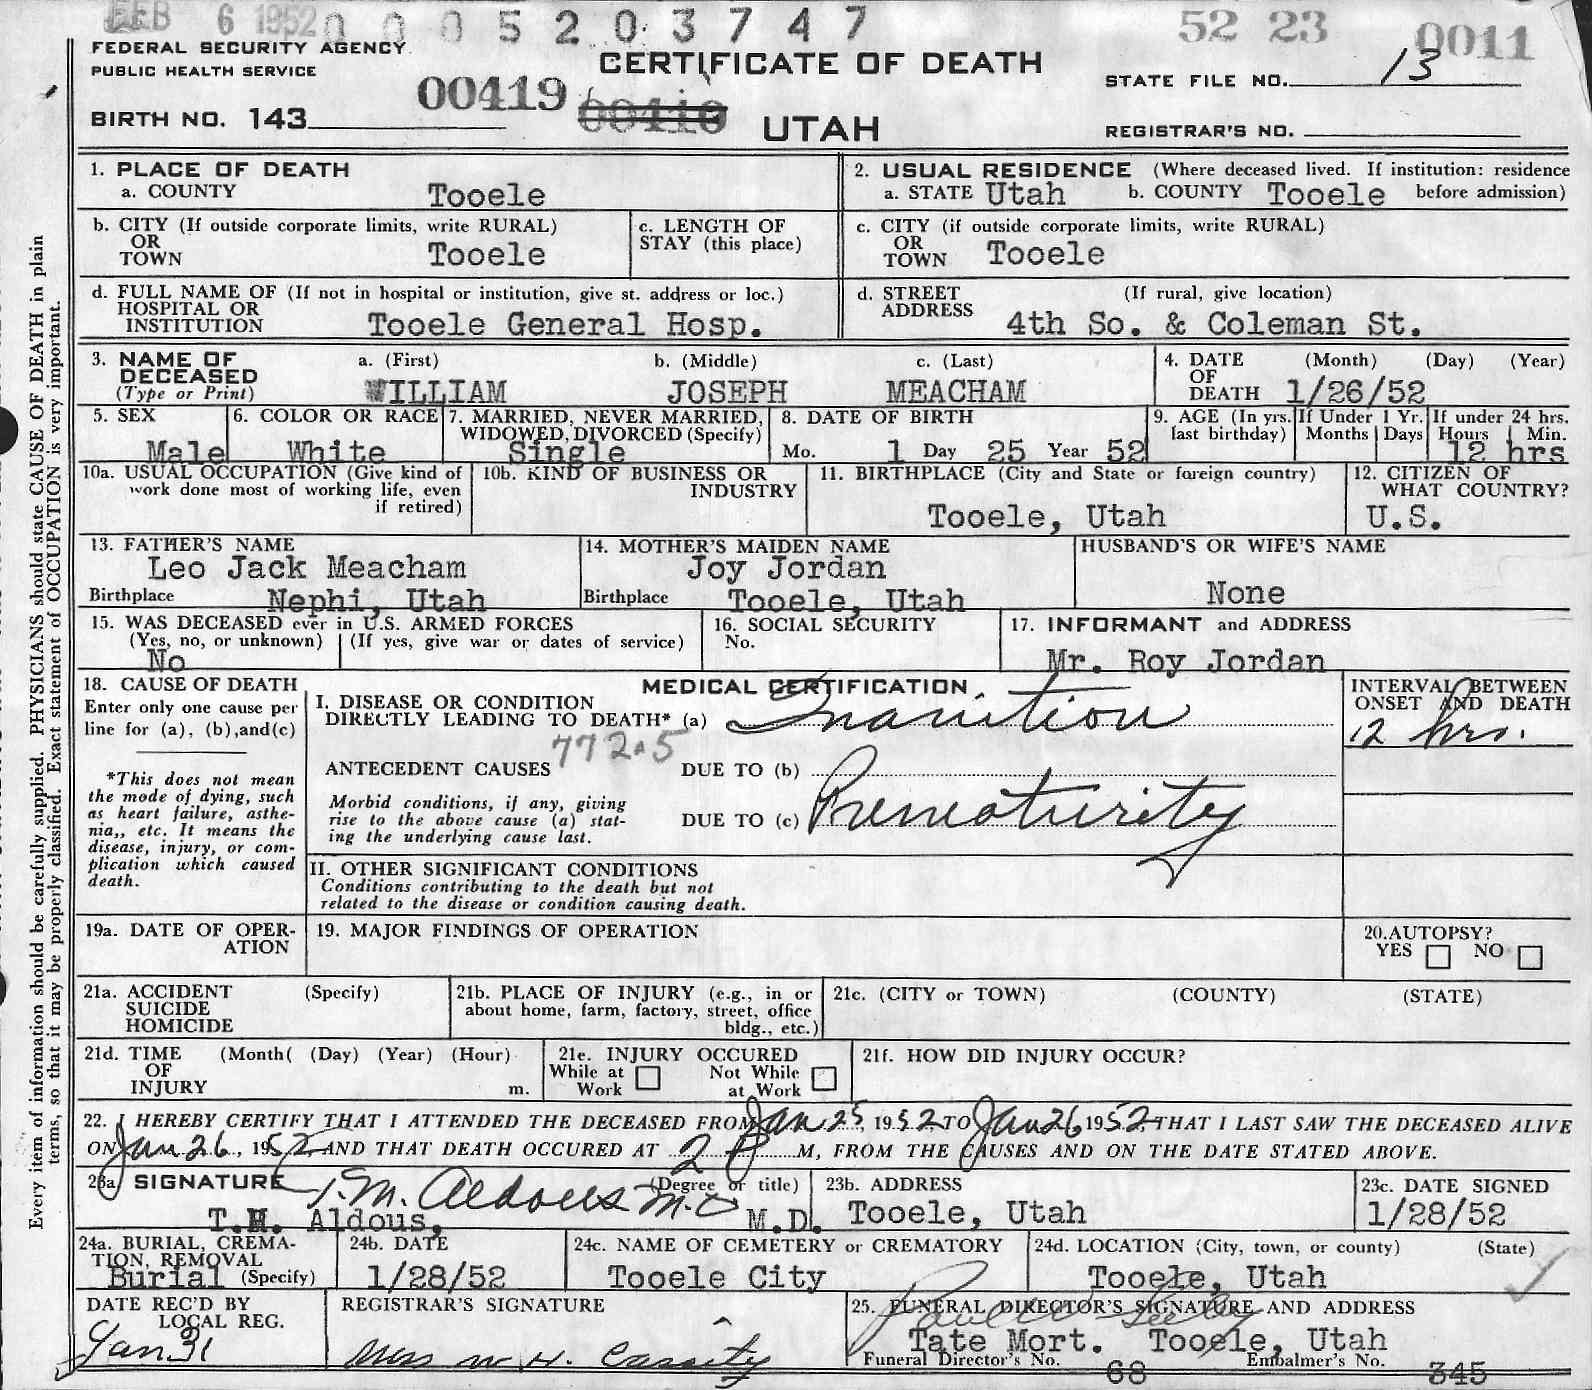 FEB 6 1952 0 0 0 5 2 0 3 7 4 7 52 23 0011
FEDERAL SECURITY AGENCY
PUBLIC HEALTH SERVICE
CERTIFICATE OF DEATH
STATE FILE NO. 13
BIRTH NO. 143 00419
UTAH
REGISTRAR'S NO.
1. PLACE OF DEATH
a. COUNTY Tooele
2. USUAL RESIDENCE (Where deceased lived. If institution: residence before admission)
a. STATE Utah b. COUNTY Tooele
b. CITY (If outside corporate limits, write RURAL)
OR
TOWN Tooele
c. LENGTH OF
STAY (this place)
c. CITY (if outside corporate limits, write RURAL)
OR
TOWN Tooele
d. FULL NAME OF (If not in hospital or institution, give st. address or loc.)
HOSPITAL OR
INSTITUTION Tooele General Hosp.
d. STREET (If rural, give location)
ADDRESS 4th So. & Coleman St.
3. NAME OF
DECEASED
(Type or Print)
a. (First) b. (Middle) c. (Last)
WILLIAM JOSEPH MEACHAM
4. DATE (Month) (Day) (Year)
OF
DEATH 1/26/52
5. SEX
Male
6. COLOR OR RACE
White
7. MARRIED, NEVER MARRIED,
WIDOWED, DIVORCED (Specify)
Single
8. DATE OF BIRTH
Mo. 1 Day 25 Year 52
9. AGE (In yrs. last birthday)
If Under 1 Yr.
Months Days
If under 24 hrs.
Hours Min.
12 hrs
10a. USUAL OCCUPATION (Give kind of
work done most of working life, even
if retired)
10b. KIND OF BUSINESS OR
INDUSTRY
11. BIRTHPLACE (City and State or foreign country)
Tooele, Utah
12. CITIZEN OF
WHAT COUNTRY?
U.S.
13. FATHER'S NAME
Leo Jack Meacham
Birthplace Nephi, Utah
14. MOTHER'S MAIDEN NAME
Joy Jordan
Birthplace Tooele, Utah
HUSBAND'S OR WIFE'S NAME
None
15. WAS DECEASED ever in U.S. ARMED FORCES
(Yes, no, or unknown) (If yes, give war or dates of service)
No
16. SOCIAL SECURITY
No.
17. INFORMANT and ADDRESS
Mr. Roy Jordan
18. CAUSE OF DEATH
Enter only one cause per
line for (a), (b),and(c)
*This does not mean
the mode of dying, such
as heart failure, asthe-
nia,, etc. It means the
disease, injury, or com-
plication which caused
death.
MEDICAL CERTIFICATION
I. DISEASE OR CONDITION
DIRECTLY LEADING TO DEATH* (a) Inanition
772.5
ANTECEDENT CAUSES DUE TO (b)
Morbid conditions, if any, giving
rise to the above cause (a) stat-
ing the underlying cause last.
DUE TO (c) Prematurity
INTERVAL BETWEEN
ONSET AND DEATH
12 hrs.
II. OTHER SIGNIFICANT CONDITIONS
Conditions contributing to the death but not
related to the disease or condition causing death.
19a. DATE OF OPER-
ATION
19. MAJOR FINDINGS OF OPERATION
20.AUTOPSY?
YES NO
21a. ACCIDENT (Specify)
SUICIDE
HOMICIDE
21b. PLACE OF INJURY (e.g., in or
about home, farm, factory, street, office
bldg., etc.)
21c. (CITY or TOWN) (COUNTY) (STATE)
21d. TIME (Month( (Day) (Year) (Hour)
OF
INJURY m.
21e. INJURY OCCURED
While at Work Not While at Work
21f. HOW DID INJURY OCCUR?
22. I HEREBY CERTIFY THAT I ATTENDED THE DECEASED FROM Jan 25, 1952 TO Jan 26 1952, THAT I LAST SAW THE DECEASED ALIVE
ON Jan 26, 1952 AND THAT DEATH OCCURED AT 2 P M, FROM THE CAUSES AND ON THE DATE STATED ABOVE.
23a SIGNATURE T.M. Aldous M.D (Degree or title)
T.H. Aldous, M.D.
23b. ADDRESS
Tooele, Utah
23c. DATE SIGNED
1/28/52
24a. BURIAL, CREMA-
TION, REMOVAL
Burial (Specify)
24b. DATE
1/28/52
24c. NAME OF CEMETERY or CREMATORY
Tooele City
24d. LOCATION (City, town, or county) (State)
Tooele, Utah
DATE REC'D BY
LOCAL REG.
Jan 31
REGISTRAR'S SIGNATURE
Miss W. H. Cassity
25. FUNERAL DIRECTOR'S SIGNATURE AND ADDRESS
Tate Mort. Tooele, Utah
Funeral Director's No. 68 Embalmer's No. 345
Every item of information should be carefully supplied. PHYSICIANS should state CAUSE OF DEATH in plain
terms, so that it may be properly classified. Exact statement of OCCUPATION is very important.